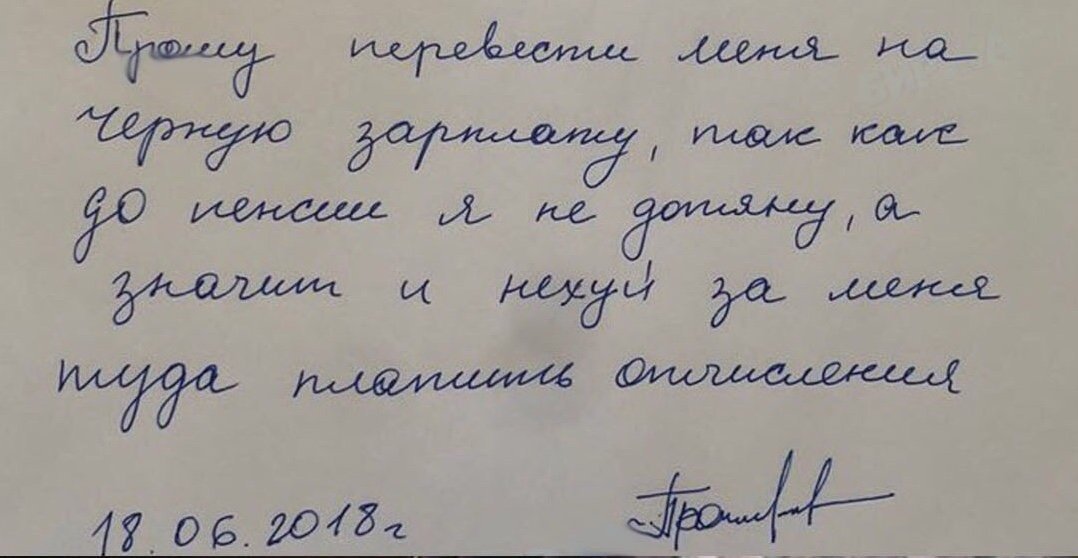 Прошу перевести меня на
черную зарплату, так как
до пенсии я не дотяну, а
значит и нехуй за меня
туда платить отчисления
18.06.2018г